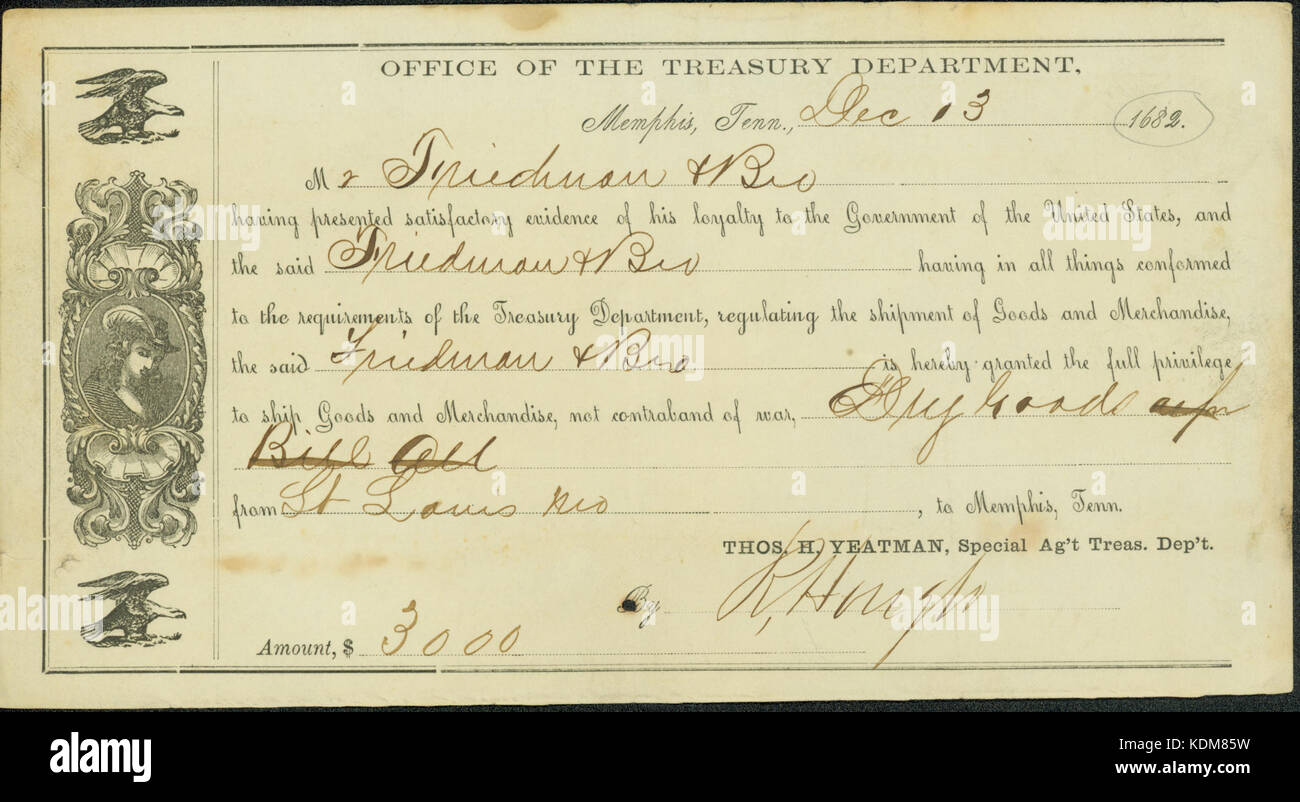 OFFICE OF THE TREASURY DEPARTMENT,
Memphis, Tenn., Dec 13 1682.
Mr Friedman & Bro
having presented satisfactory evidence of his loyalty to the Government of the United States, and
the said Friedman & Bro having in all things conformed
to the requirements of the Treasury Department, regulating the shipment of Goods and Merchandise,
the said Friedman & Bro is hereby granted the full privilege
to ship Goods and Merchandise, not contraband of war, Dry Goods
Bill
from St Louis Mo, to Memphis, Tenn.
THOS. H. YEATMAN, Special Ag't Treas. Dep't.
By R, Hough
Amount, $ 3000
alamy
Image ID: KDM85W
www.alamy.com